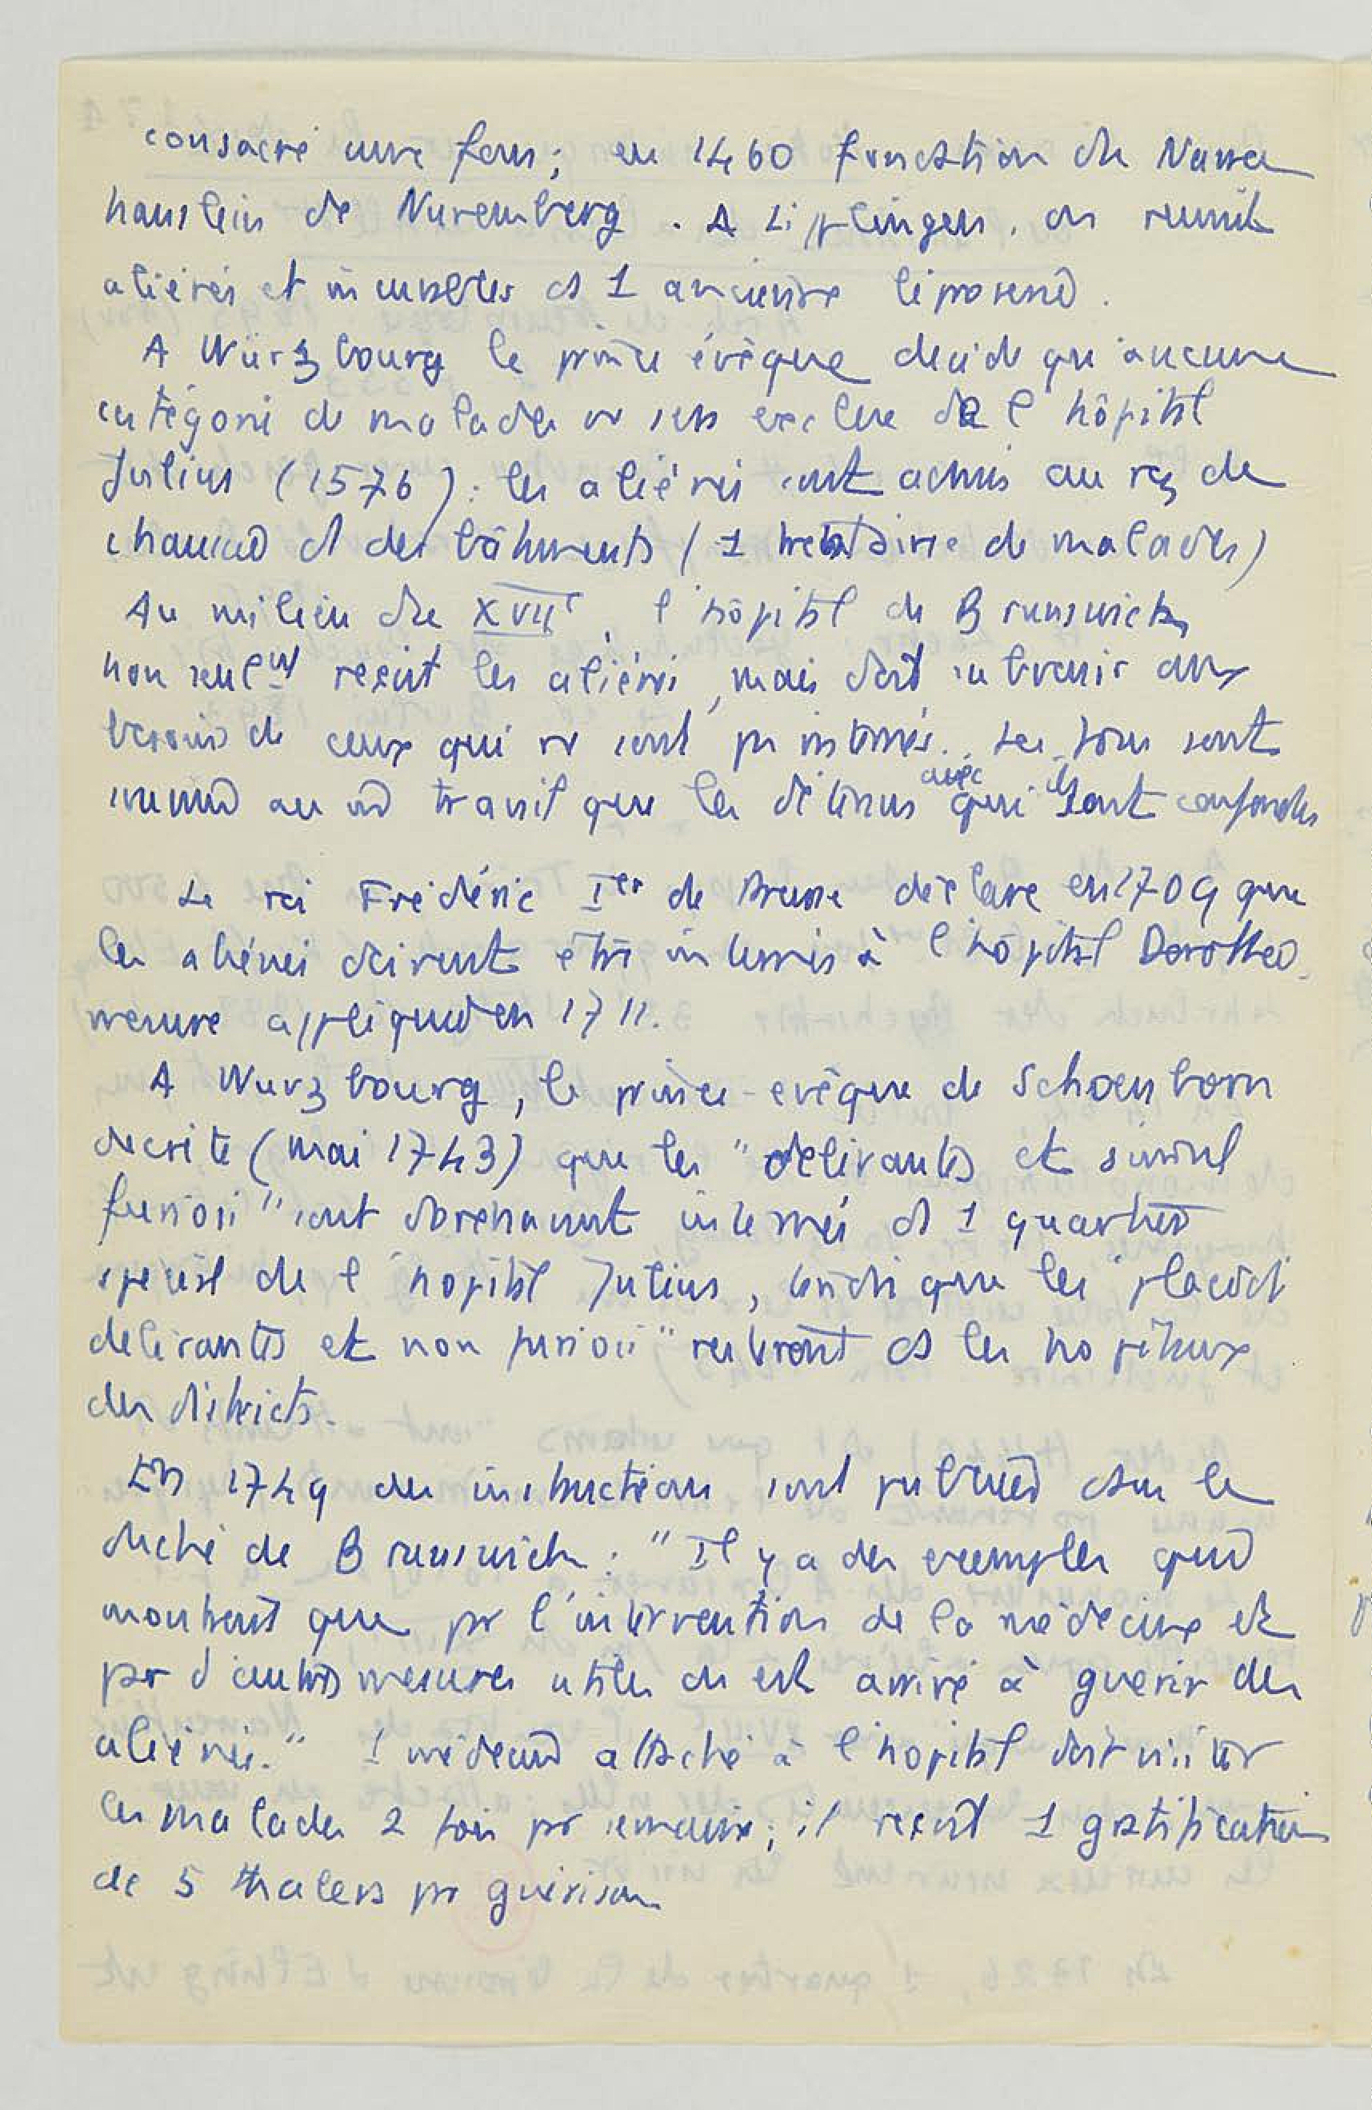 consacré aux fous ; en 1460 fonction du Narren
hauslein de Nuremberg. A Lipplingen, on réunit
aliénés et incurables ds 1 ancienne léproserie.
A Würzbourg le prince évêque décide qu'aucune
catégorie de malades ne sera exclue de l'hôpital
Julius (1576) : les aliénés sont admis au rez de
chaussée ds des bâtiments (1 trentaine de malades)
Au milieu du XVIIe, l'hôpital de Brunswick,
non seulnt reçoit les aliénés, mais doit subvenir aux
besoins de ceux qui ne sont pas internés. Les fous sont
soumis au md travail que les détenus avec qui ils sont confondus
Le roi Frédéric Ier de Prusse déclare en 1709 que
les aliénés doivent être internés à l'hôpital Dorothée.
mesure appliquée en 1711.
A Wurzbourg, le prince-évêque de Schoenborn
décrète (mai 1743) que les "delirantes et simul
furiosi" sont dorénavant internés ds 1 quartier
spécial de l'hôpital Julius, tandis que les "placidi
delirantes et non furiosi" resteront ds les hopitaux
des districts.
En 1749 des instructions sont publiées dans le
duché de Brunswick : "Il y a des exemples qui
montrent que pr l'intervention de la médecine et
par d'autres mesures utiles on est arrivé à guérir des
aliénés." 1 médecin attaché à l'hopital doit visiter
les malades 2 fois pr semaine ; il reçoit 1 gratification
de 5 thalers pr guérison